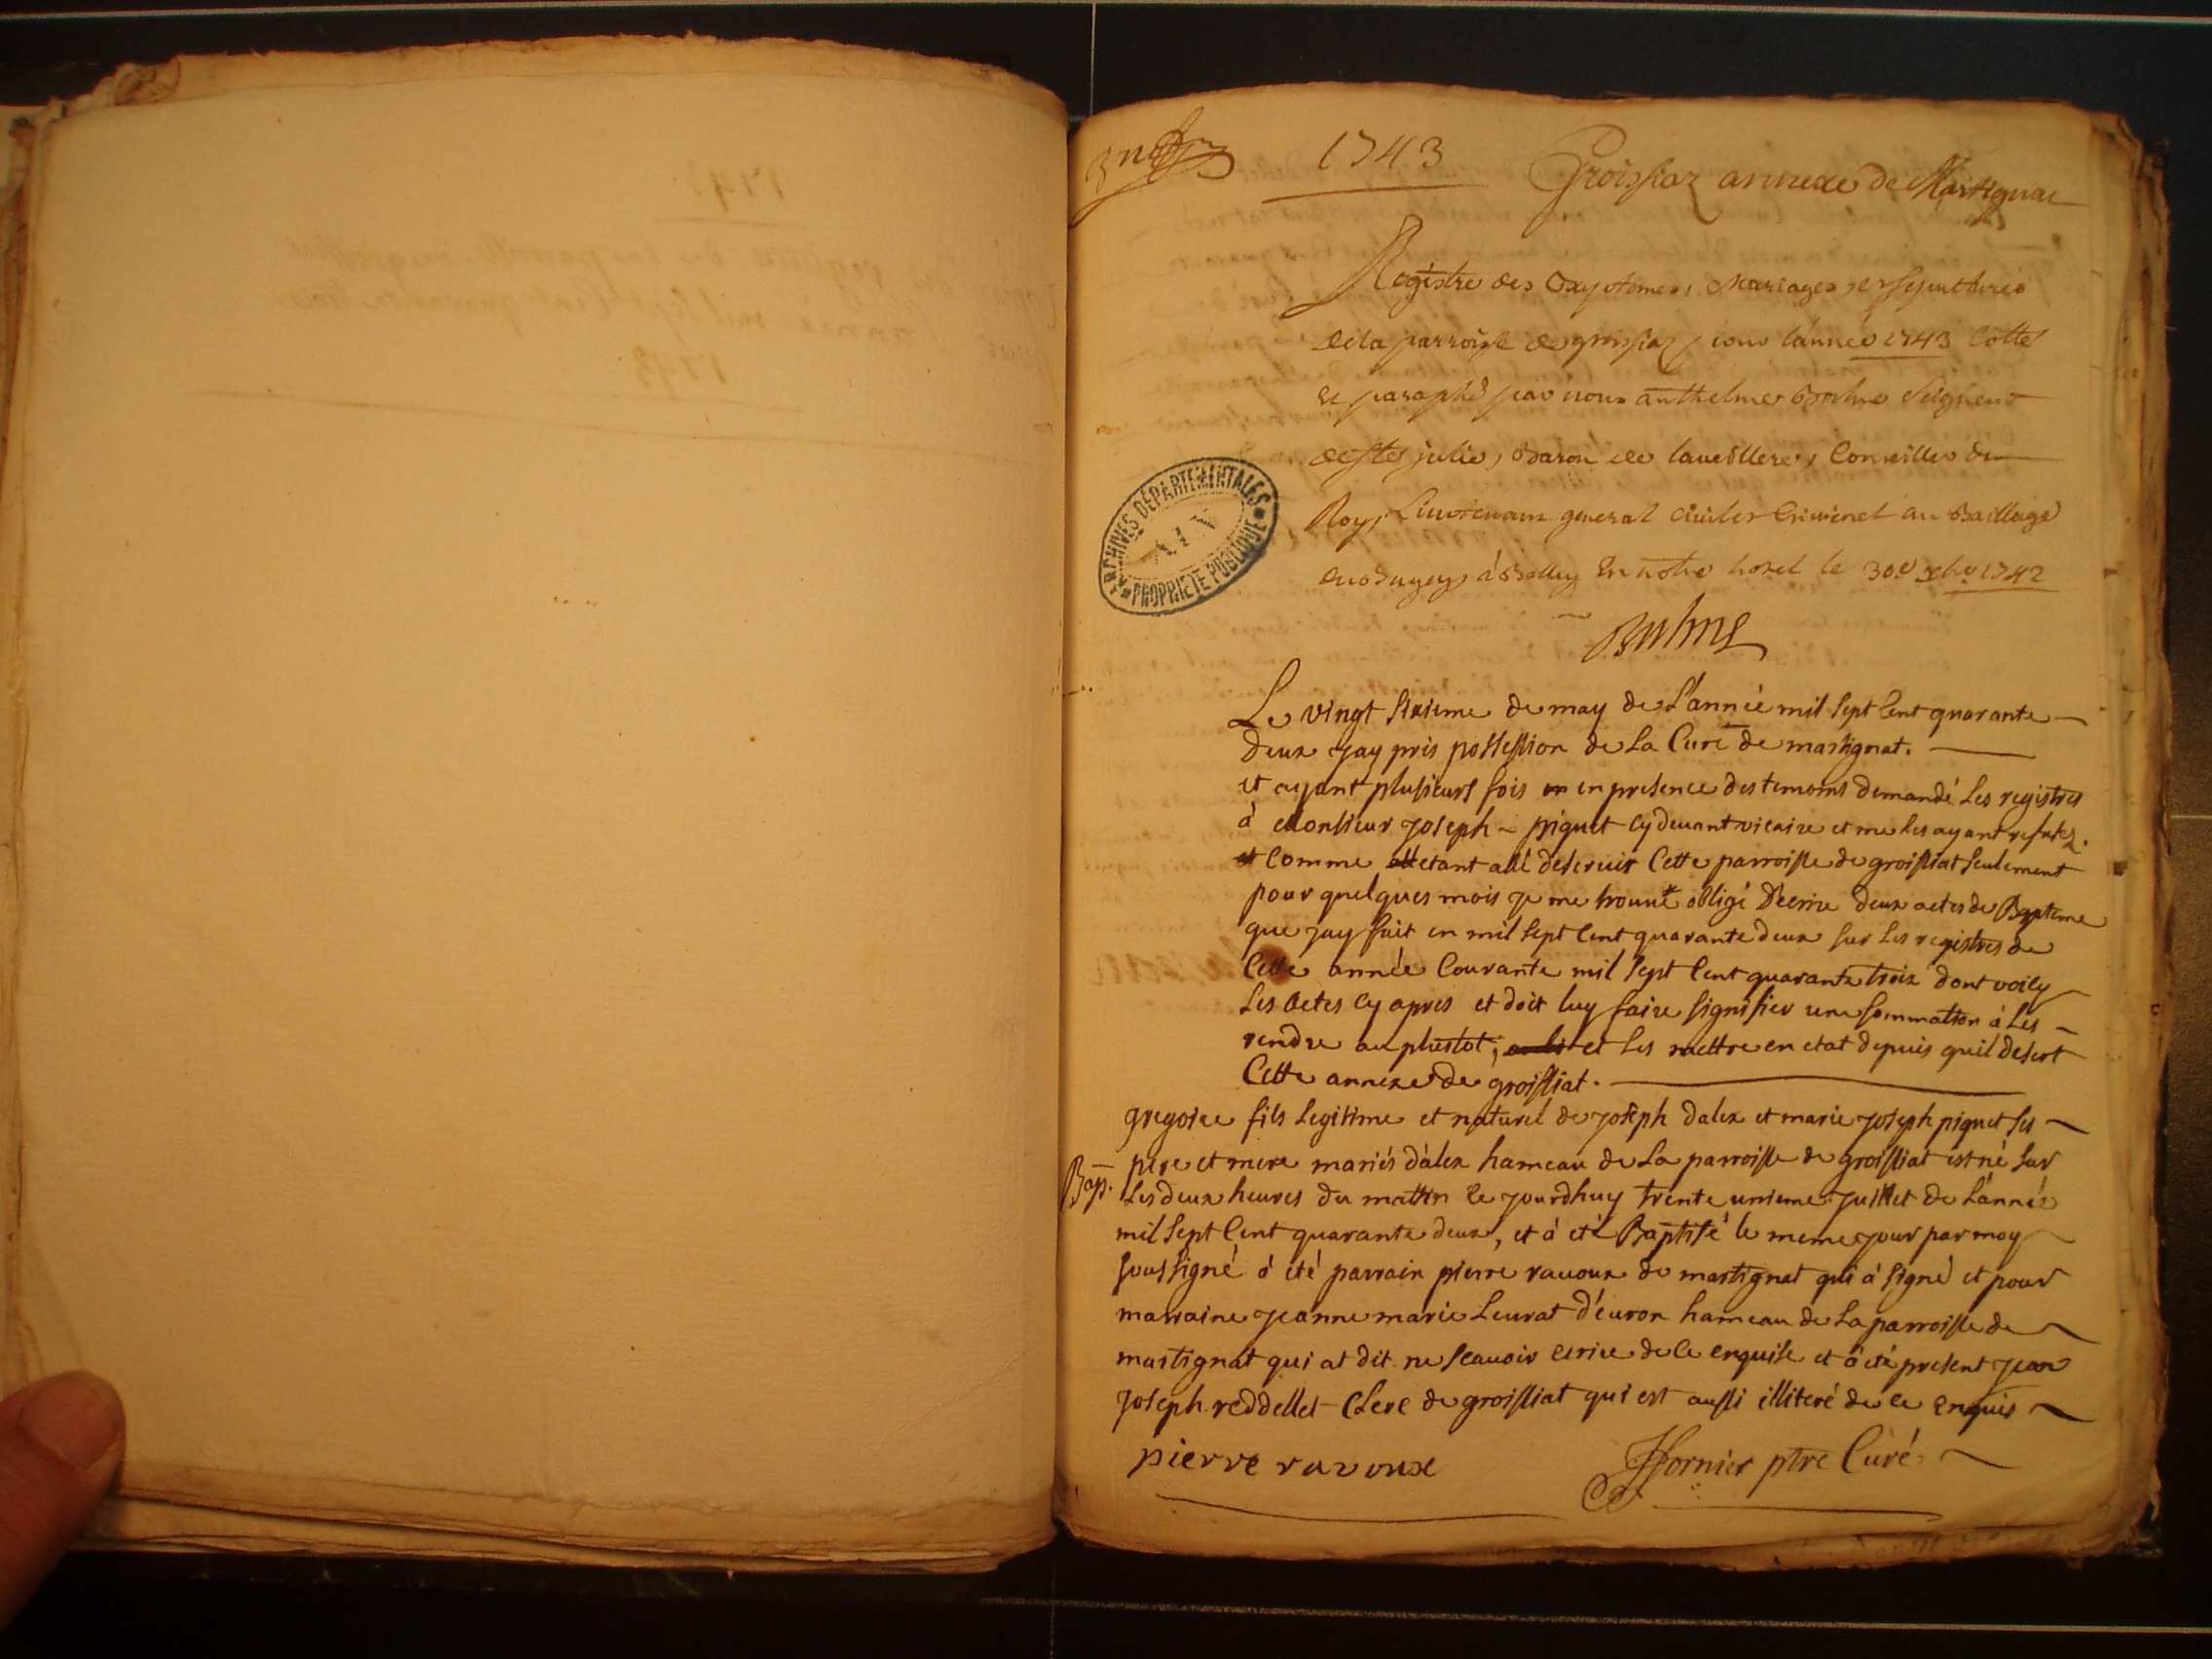 1743
Groissiaz annexe de Martignac
Registre des Baptemes, Mariages, et sepultures
de la parroisse de groissiaz pour l'année 1743 Cotté
et paraphé par nous anthelme Seigneur
de ste julie, Baron de laveillere, Conseiller du
Roy, Lieutenant general civil et Criminel au Baillage
du Bugey, à Belley En notre hotel le 30e xbre 1742
ARCHIVES DÉPARTEMENTALES
AIN
PROPRIÉTÉ PUBLIQUE
Le vingt sixieme de may de L'année mil sept Cent quarante
Deux jay pris possession de La Cure de martignat.
et ayant plusieurs fois en presence des temoins demandé Les registres
à Monsieur joseph piquet cy devant vicaire et me les ayant refusez.
et Comme etant allé deservir Cette parroisse de groissiat seulement
pour quelques mois je me trouve obligé D'ecrire deux actes de Bapteme
que jay fait en mil sept Cent quarante deux sur Les registres de
Cette année Courante mil sept Cent quarante trois dont voicy
Les actes cy apres et doit luy faire signifier une sommation à Les
rendre au plustot, et les mettre en etat depuis quil desert
Cette annexe de groissiat.
gregoire fils Legitime et naturel de joseph dalex et marie joseph piquet ses
Bap. pere et mere mariés d'alex hameau de La parroisse de groissiat est né sur
Les deux heures du mattin Le jourdhuy trente unieme juillet de L'année
mil sept Cent quarante deux, et à eté Baptisé le meme jour par moy
soussigné à été parrain pierre ravoux de martignat qui à signé et pour
marraine jeanne marie Leurat d'evron hameau de La parroisse de
martignat qui at dit ne scavoir ecrire de Ce enquise et à eté present jean
joseph reddellet Clerc de groissiat qui est aussi illiteré de ce enquis
pierre ravoux
JFornier ptre Curé